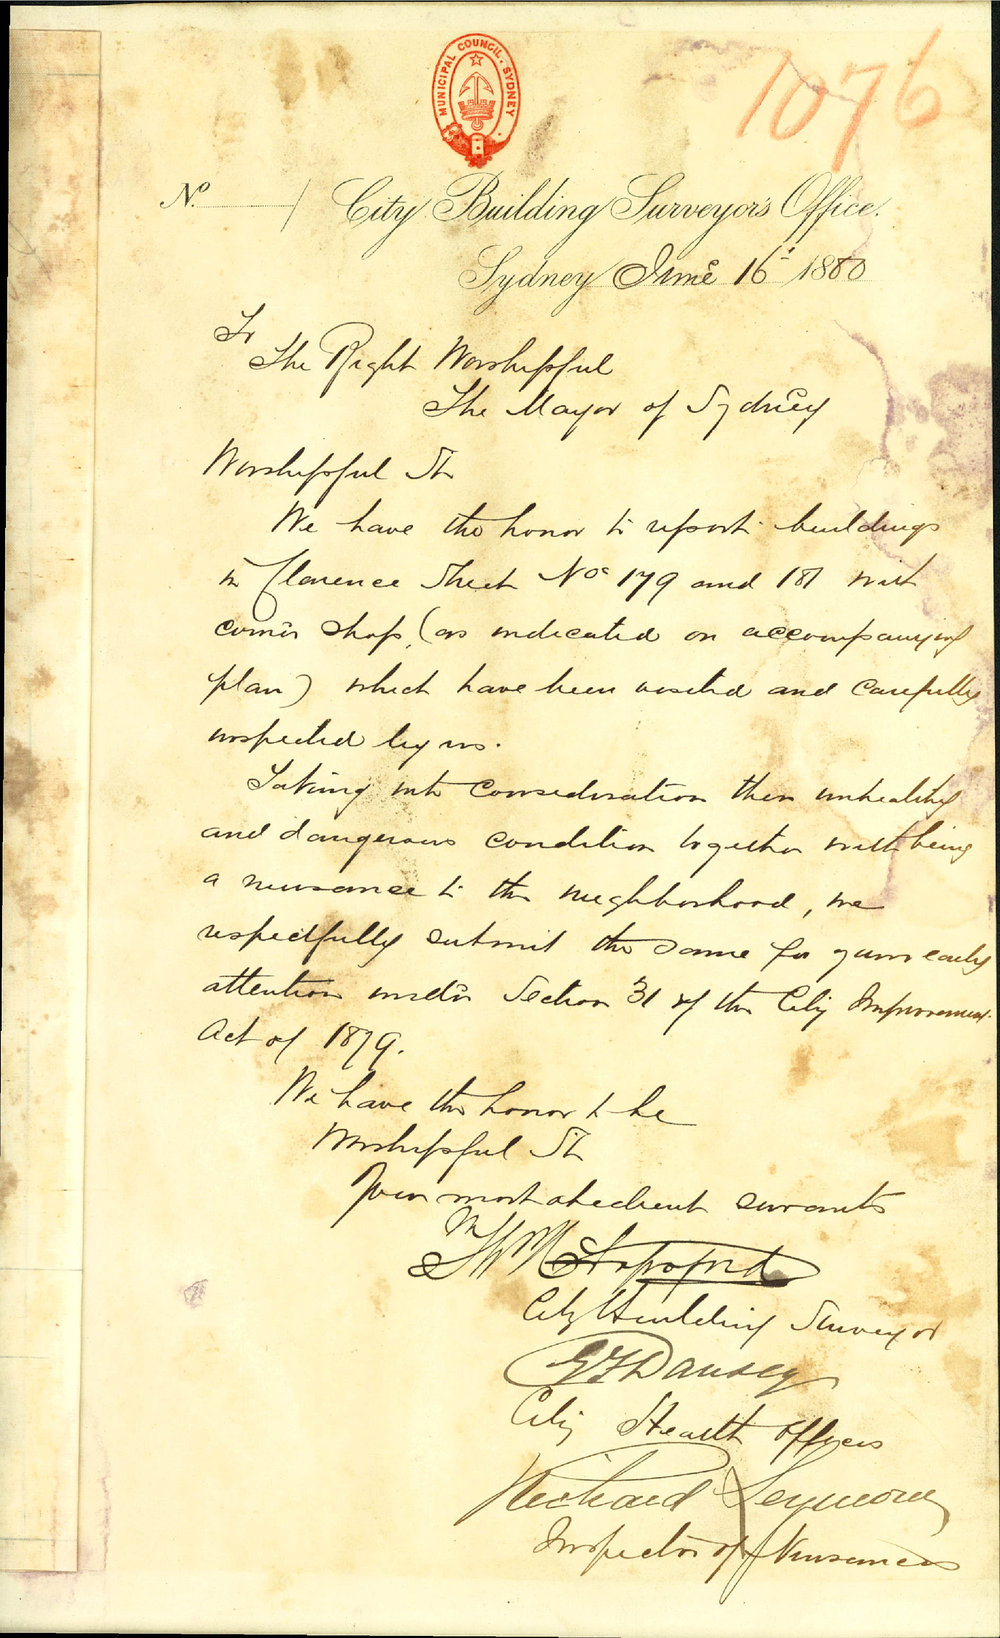 MUNICIPAL COUNCIL, SYDNEY
1076
No. / City Building Surveyor's Office.
Sydney June 16th 1880
To
The Right Worshipful
The Mayor of Sydney
Worshipful Sir
We have the honor to report buildings
in Clarence Street Nos 179 and 181 with
corner shop, (as indicated on accompanying
plan) which have been visited and carefully
inspected by us.
Taking into consideration their unhealthy
and dangerous condition together with being
a nuisance to the neighborhood, we
respectfully submit the same for your early
attention under Section 31 of the City Improvement
Act of 1879.
We have the honor to be
Worshipful Sir
Your most obedient servants
City Building Surveyor
G F Dansey
City Health Officer
Richard Seymour
Inspector of Nuisances